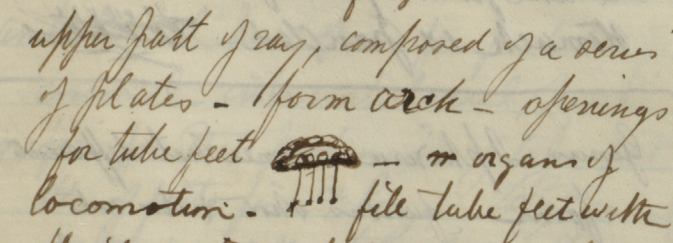 upper part of ray, composed of a series
of plates - form arch - openings
for tube feet - or organs of
locomotion. - fill tube feet with